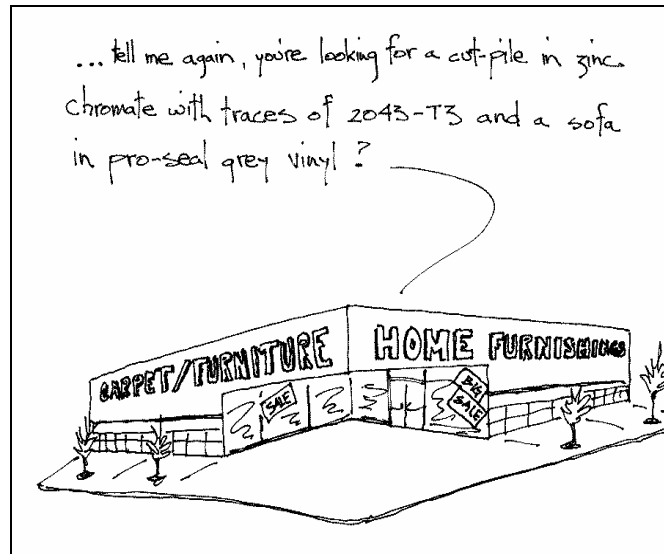 ... tell me again, you're looking for a cut-pile in zinc
chromate with traces of 2043-T3 and a sofa
in pro-seal grey vinyl?
CARPET/FURNITURE
HOME FURNISHINGS
SALE
BIG
SALE